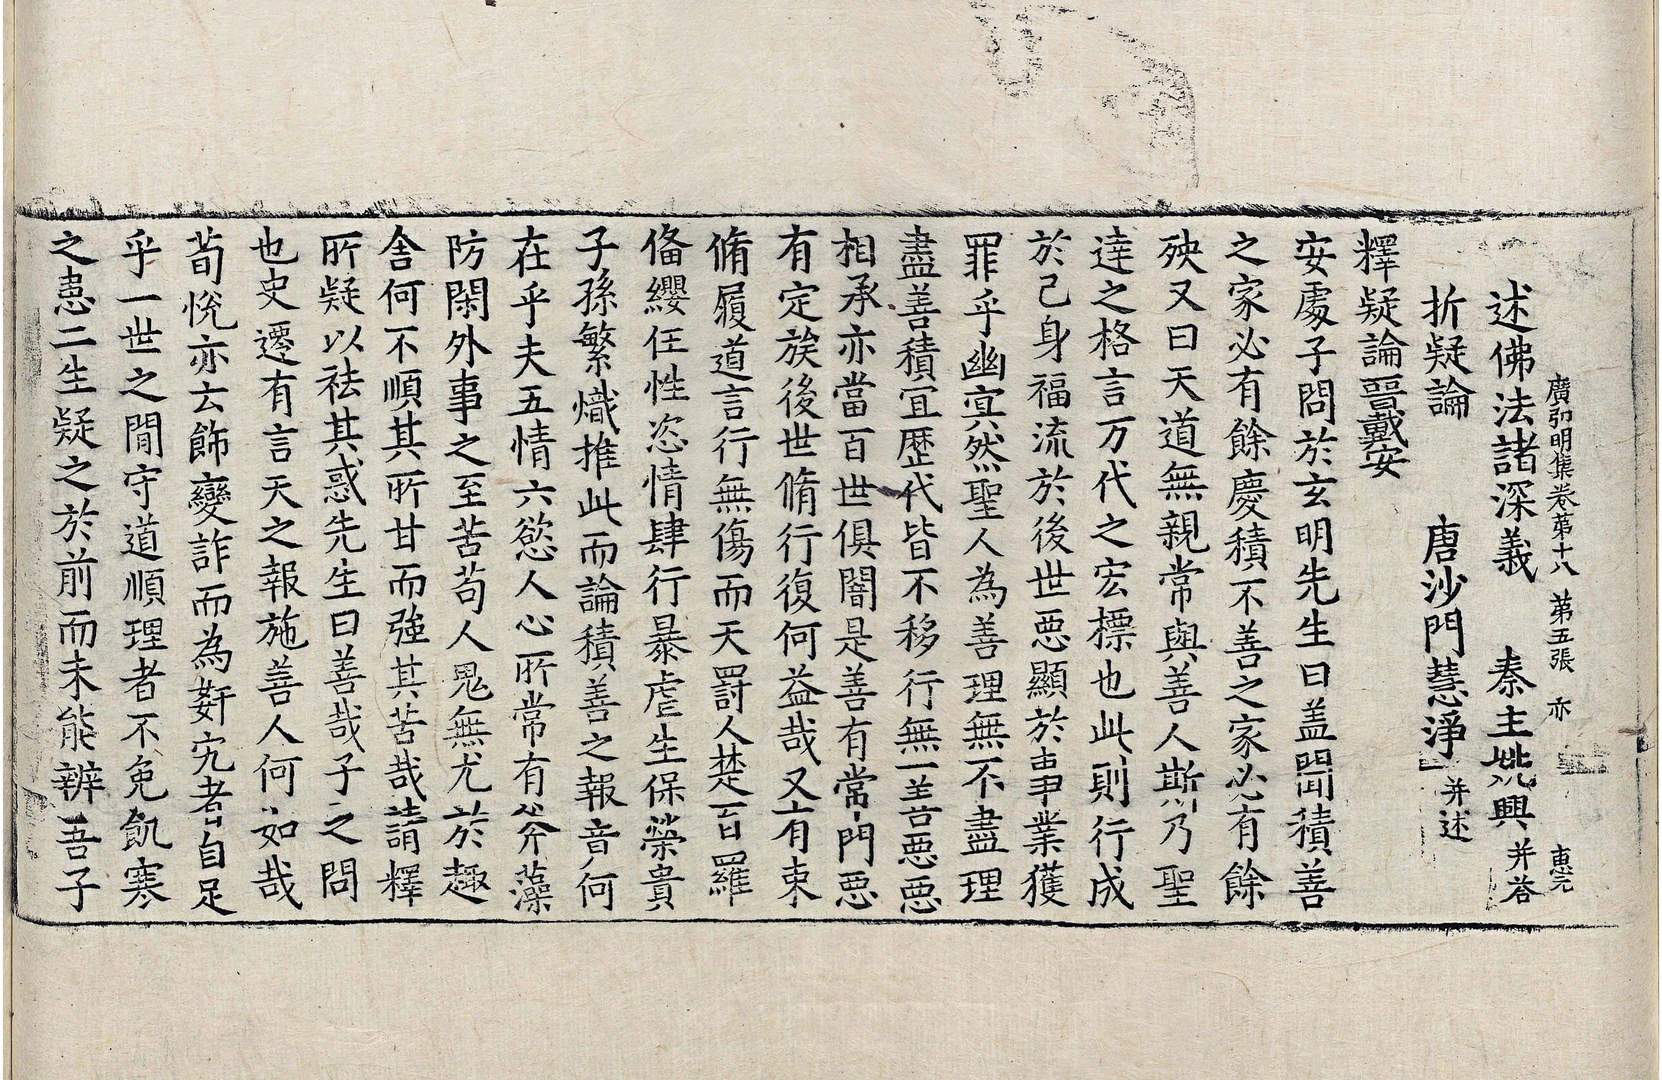 廣弘明集卷第十八 第五張 亦 惠堯
述佛法諸深義 秦主姚興并荅
折疑論 唐沙門慧淨并述
釋疑論晉戴安
安處子問於玄明先生曰盖聞積善
之家必有餘慶積不善之家必有餘
殃又曰天道無親常與善人斯乃聖
達之格言万代之宏標也此則行成
於己身福流於後世惡顯於事業獲
罪乎幽冥然聖人為善理無不盡理
盡善積宜歷代皆不移行無一善惡惡
相承亦當百世俱闇是善有常門惡
有定族後世脩行復何益哉又有束
脩履道言行無傷而天罰人楚百羅
備纓任性恣情肆行暴虐生保榮貴
子孫繁熾推此而論積善之報竟何
在乎夫五情六慾人心所常有斧藻
防閑外事之至苦苟人鬼無尤於趣
舍何不順其所甘而強其苦哉請釋
所疑以祛其惑先生曰善哉子之問
也史遷有言天之報施善人何如哉
荀悅亦云飾變詐而為姧宄者自足
乎一世之間守道順理者不免飢寒
之患二生疑之於前而未能辨吾子